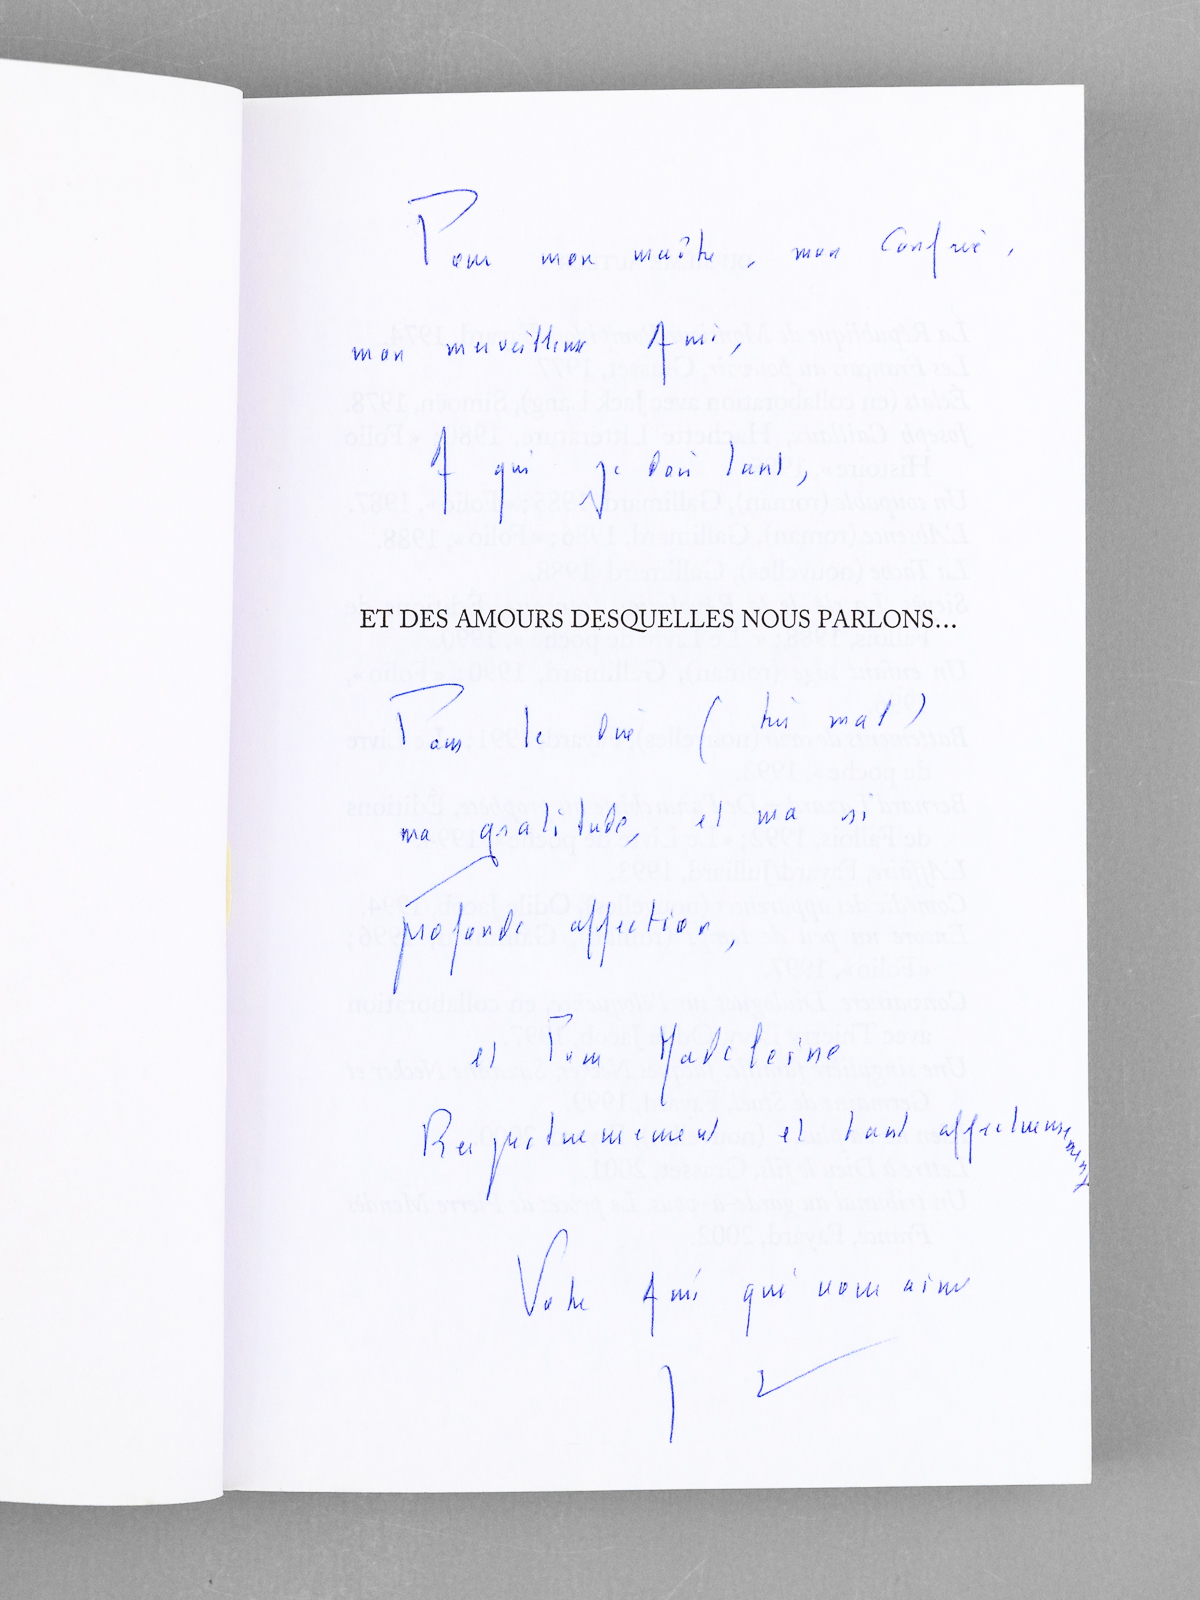 Pour mon maître, mon Confrère,
mon merveilleux Ami,
A qui je dois tant,
ET DES AMOURS DESQUELLES NOUS PARLONS…
Pour le dire (très mal)
ma gratitude, et ma si
profonde affection,
et Pour Madeleine
Respectueusement et tant affectueusement
Votre Ami qui vous aime